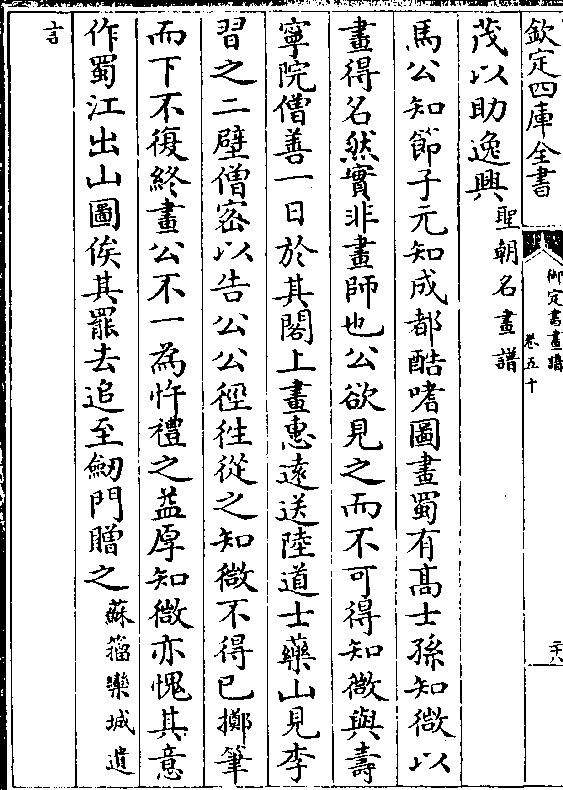 欽定四庫全書
御定書畫譜
卷五十
二十八
茂以助逸興聖朝名畫譜
馬公知節子元知成都酷嗜圖畫蜀有髙士孫知微以
畫得名然實非畫師也公欲見之而不可得知微與壽
寧院僧善一日於其閣上畫惠逺送陸道士藥山見李
習之二壁僧宻以告公公徑徃從之知微不得已擲筆
而下不復終畫公不一為忤禮之益厚知微亦愧其意
作蜀江出山圖俟其罷去追至劒門贈之蘇籀欒城遺
言